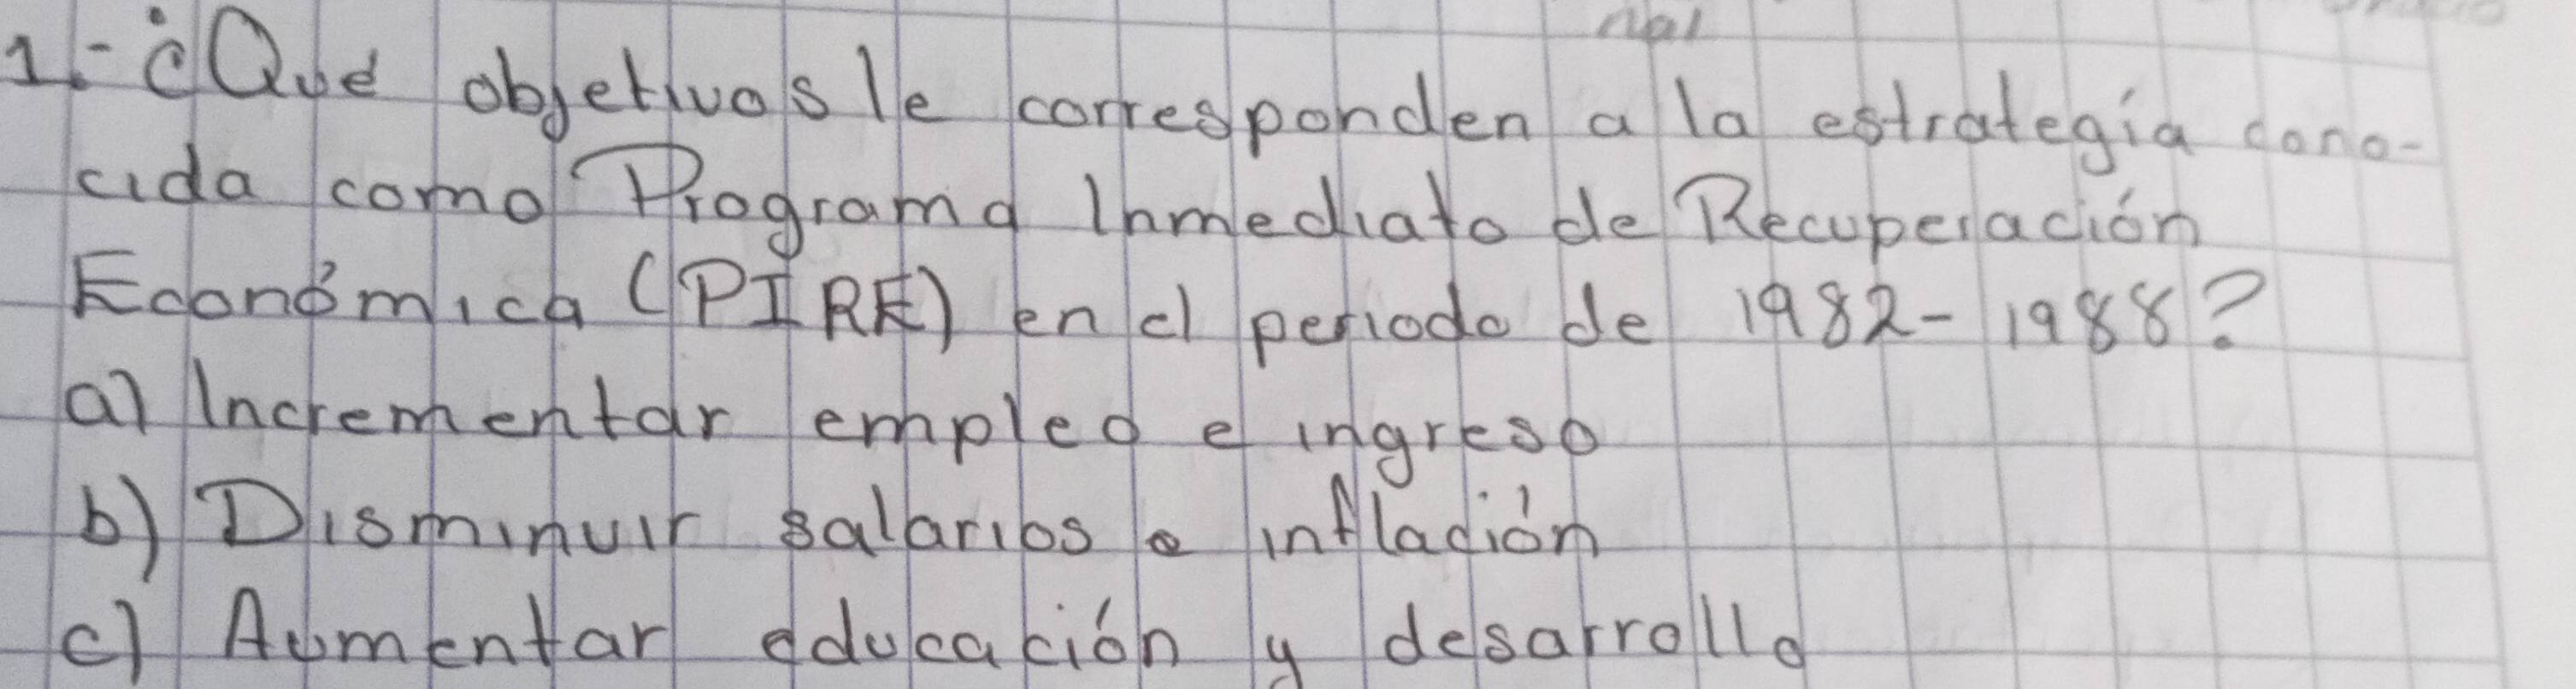 1.- ¿Qué objetivos le corresponden a la estrategía cono-
cida como Programa Inmediato de Recuperación
Económica (PIRE) en el periodo de 1982-1988?
a) Incrementar empleo e ingreso
b) Disminuir salarios e inflación
c) Aumentar educación y desarrollo